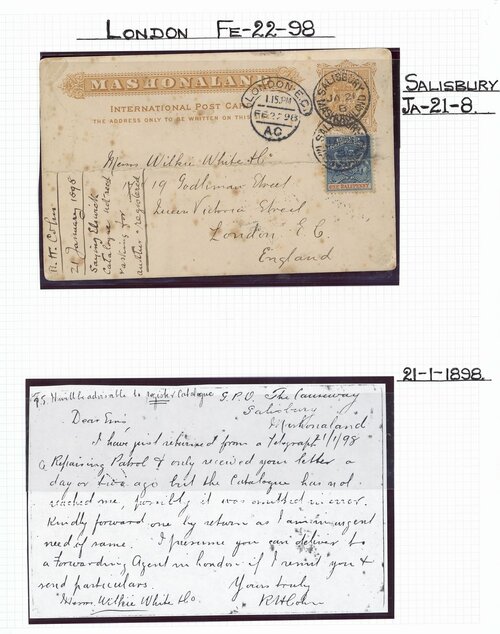 LONDON FE-22-98
MASHONALAND
INTERNATIONAL POST CARD
THE ADDRESS ONLY TO BE WRITTEN ON THIS
LONDON.E.C.
1.15.PM
FE 22 98
A C
SALISBURY
JA 21
8
MASHONALAND
SALISBURY
JA-21-8.
ONE HALFPENNY
Messrs Wilkie White & Co
19 Godliman Street
Queen Victoria Street
London E.C.
England
R. H. Cohn
21 January 1898
Saying
Catalogue not recd
&
registered
21-1-1898.
P.S. It will be advisable to register Catalogue
G.P.O. The Causeway
Salisbury
Mashonaland
Dear Sirs
1/1/98
I have just returned from a Telegraph
Repairing Patrol & only received your letter
a day or two ago but the Catalogue has not
reached me, possibly it was omitted in error.
Kindly forward one by return as I am in urgent
need of same. I presume you can deliver to
a Forwarding Agent in London if I remit you &
send particulars.
Yours truly
Messrs Wilkie White & Co
R H Cohn